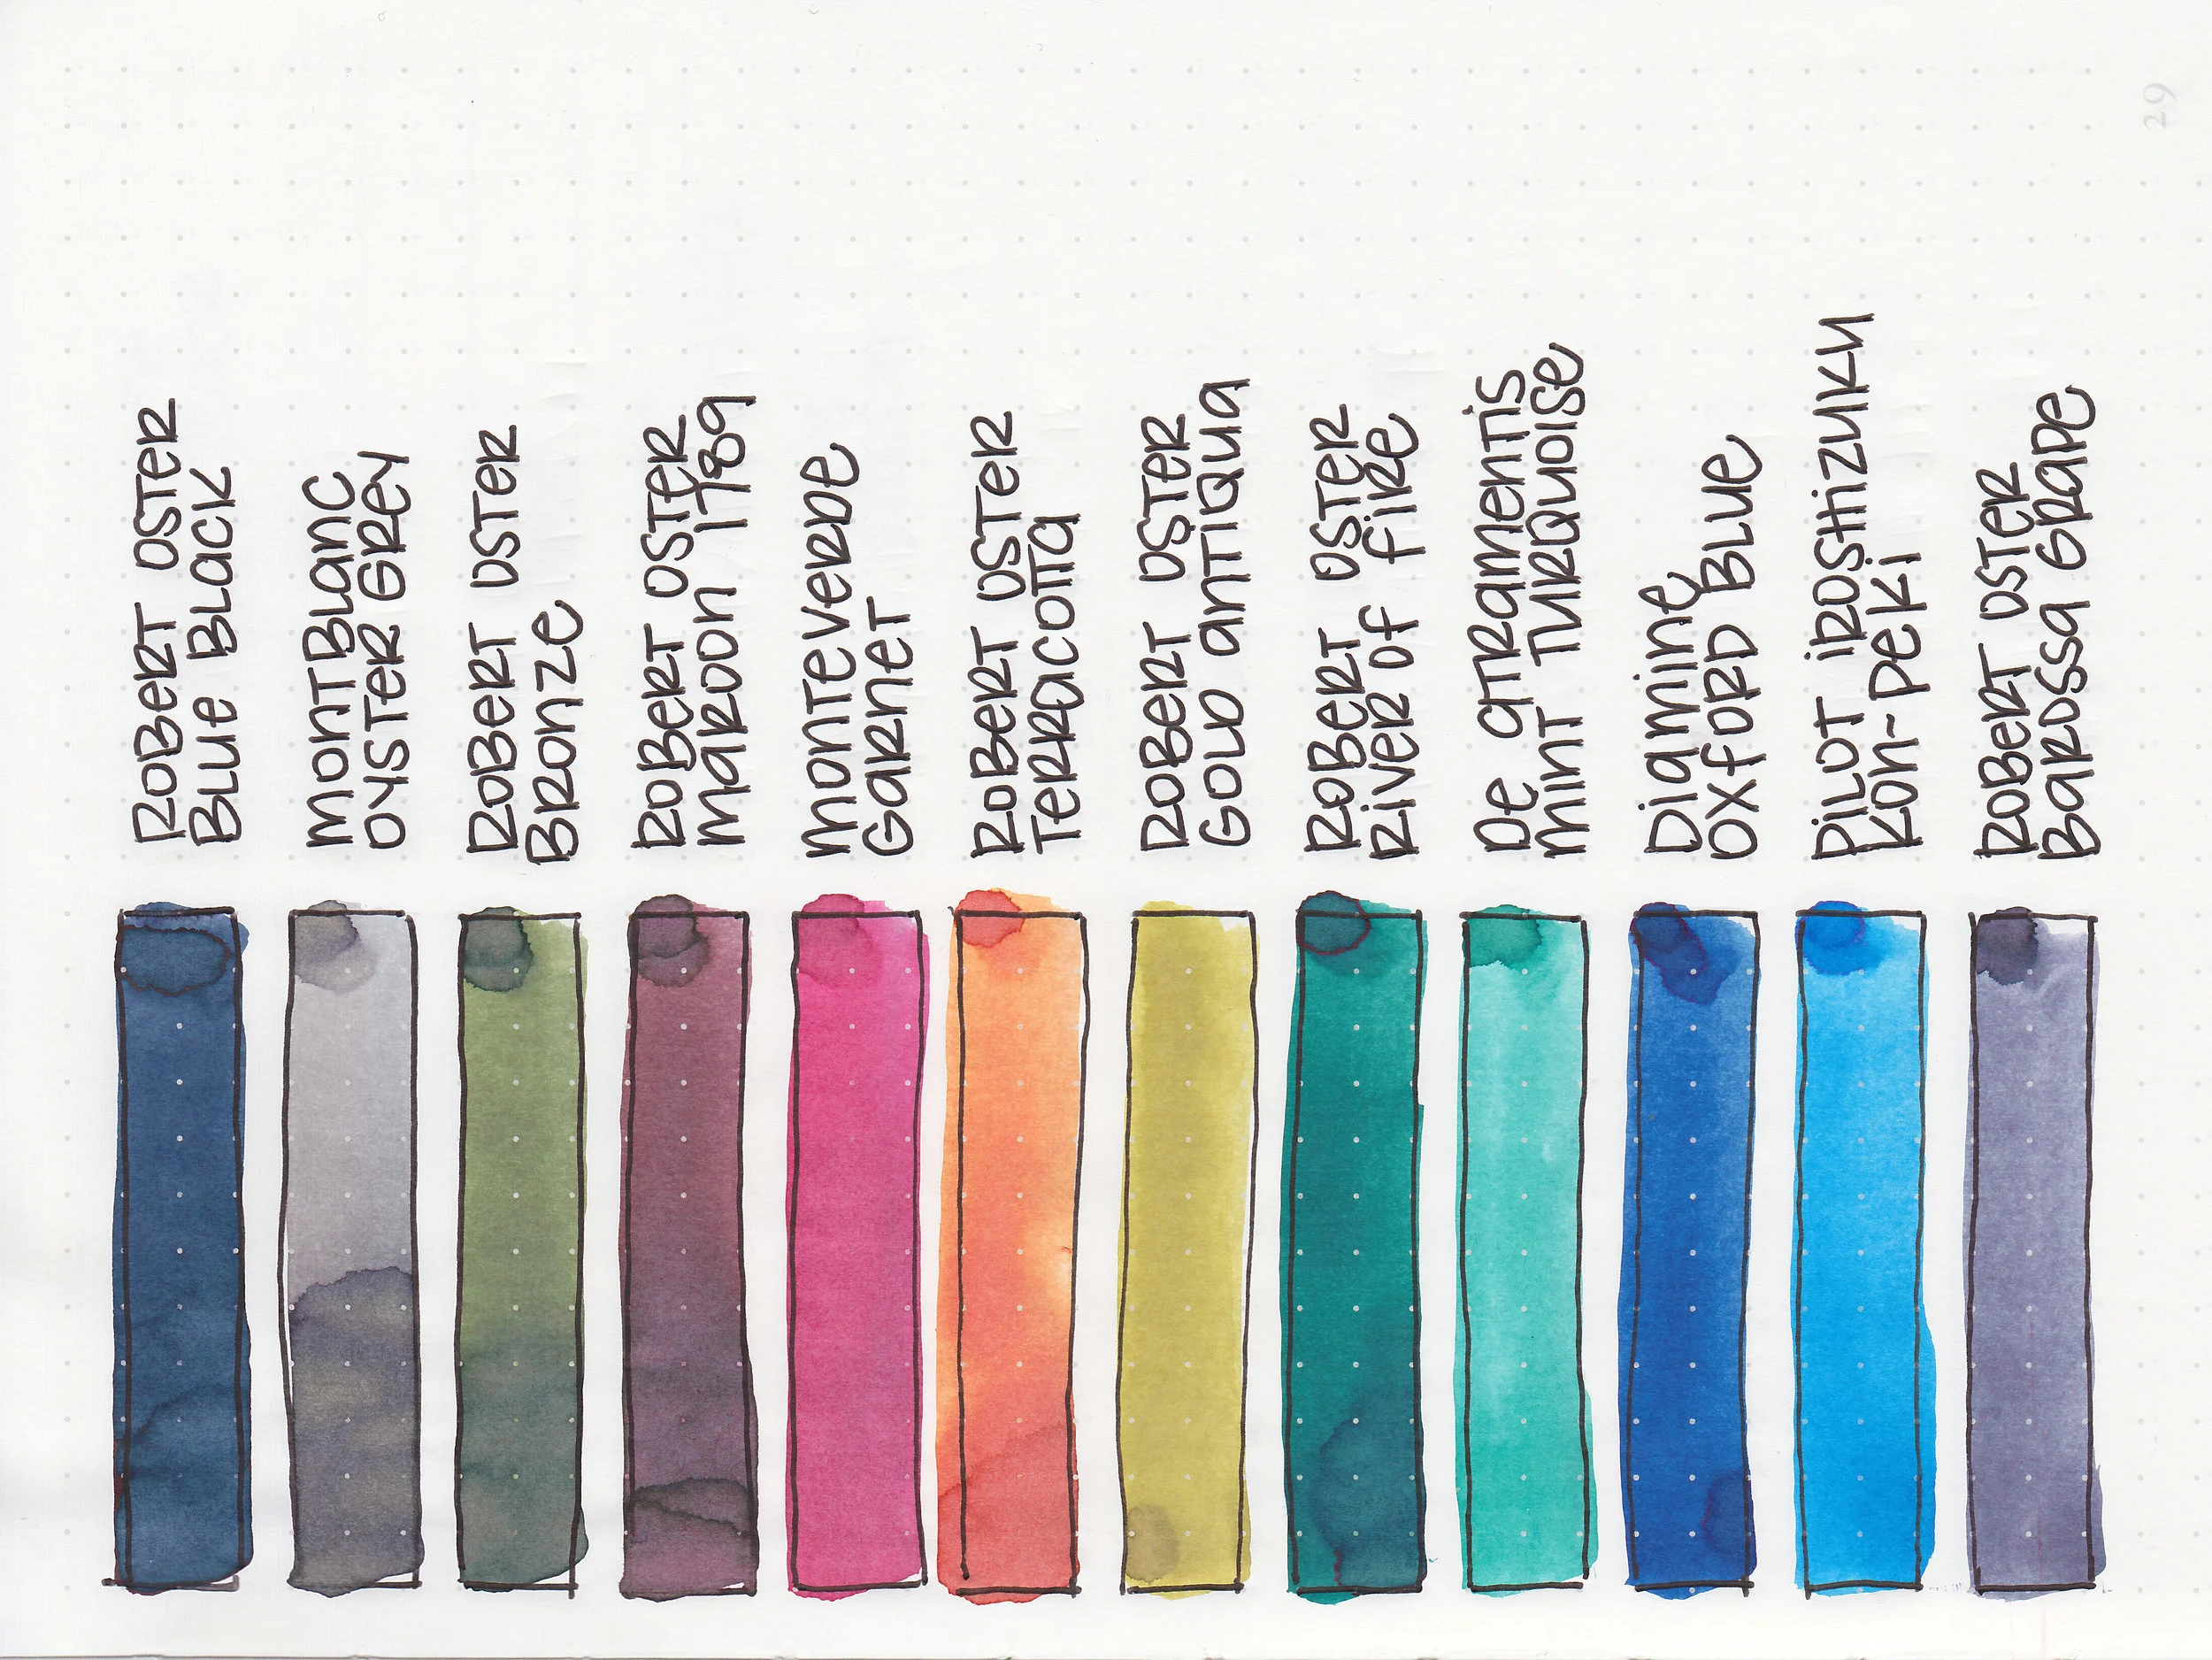 ROBERT OSTER
BLUE BLACK
MONTBLANC
OYSTER GREY
ROBERT OSTER
BRONZE
ROBERT OSTER
MAROON 1789
MONTEVERDE
GARNET
ROBERT OSTER
TERRACOTTA
ROBERT OSTER
GOLD ANTIQUA
ROBERT OSTER
RIVER OF FIRE
DE ATRAMENTIS
MINT TURQUOISE
DIAMINE
OXFORD BLUE
PILOT IROSHIZUKU
KON-PEKI
ROBERT OSTER
BAROSSA GRAPE
29